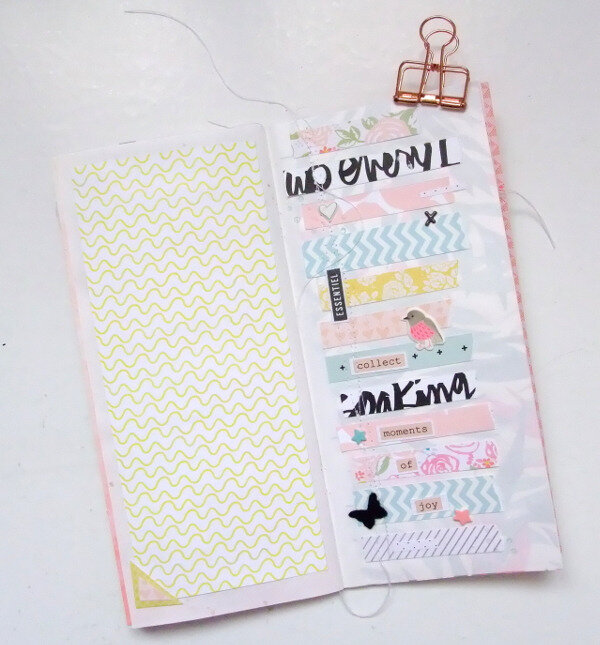 ESSENTIEL
collect
soaking
moments
of
joy